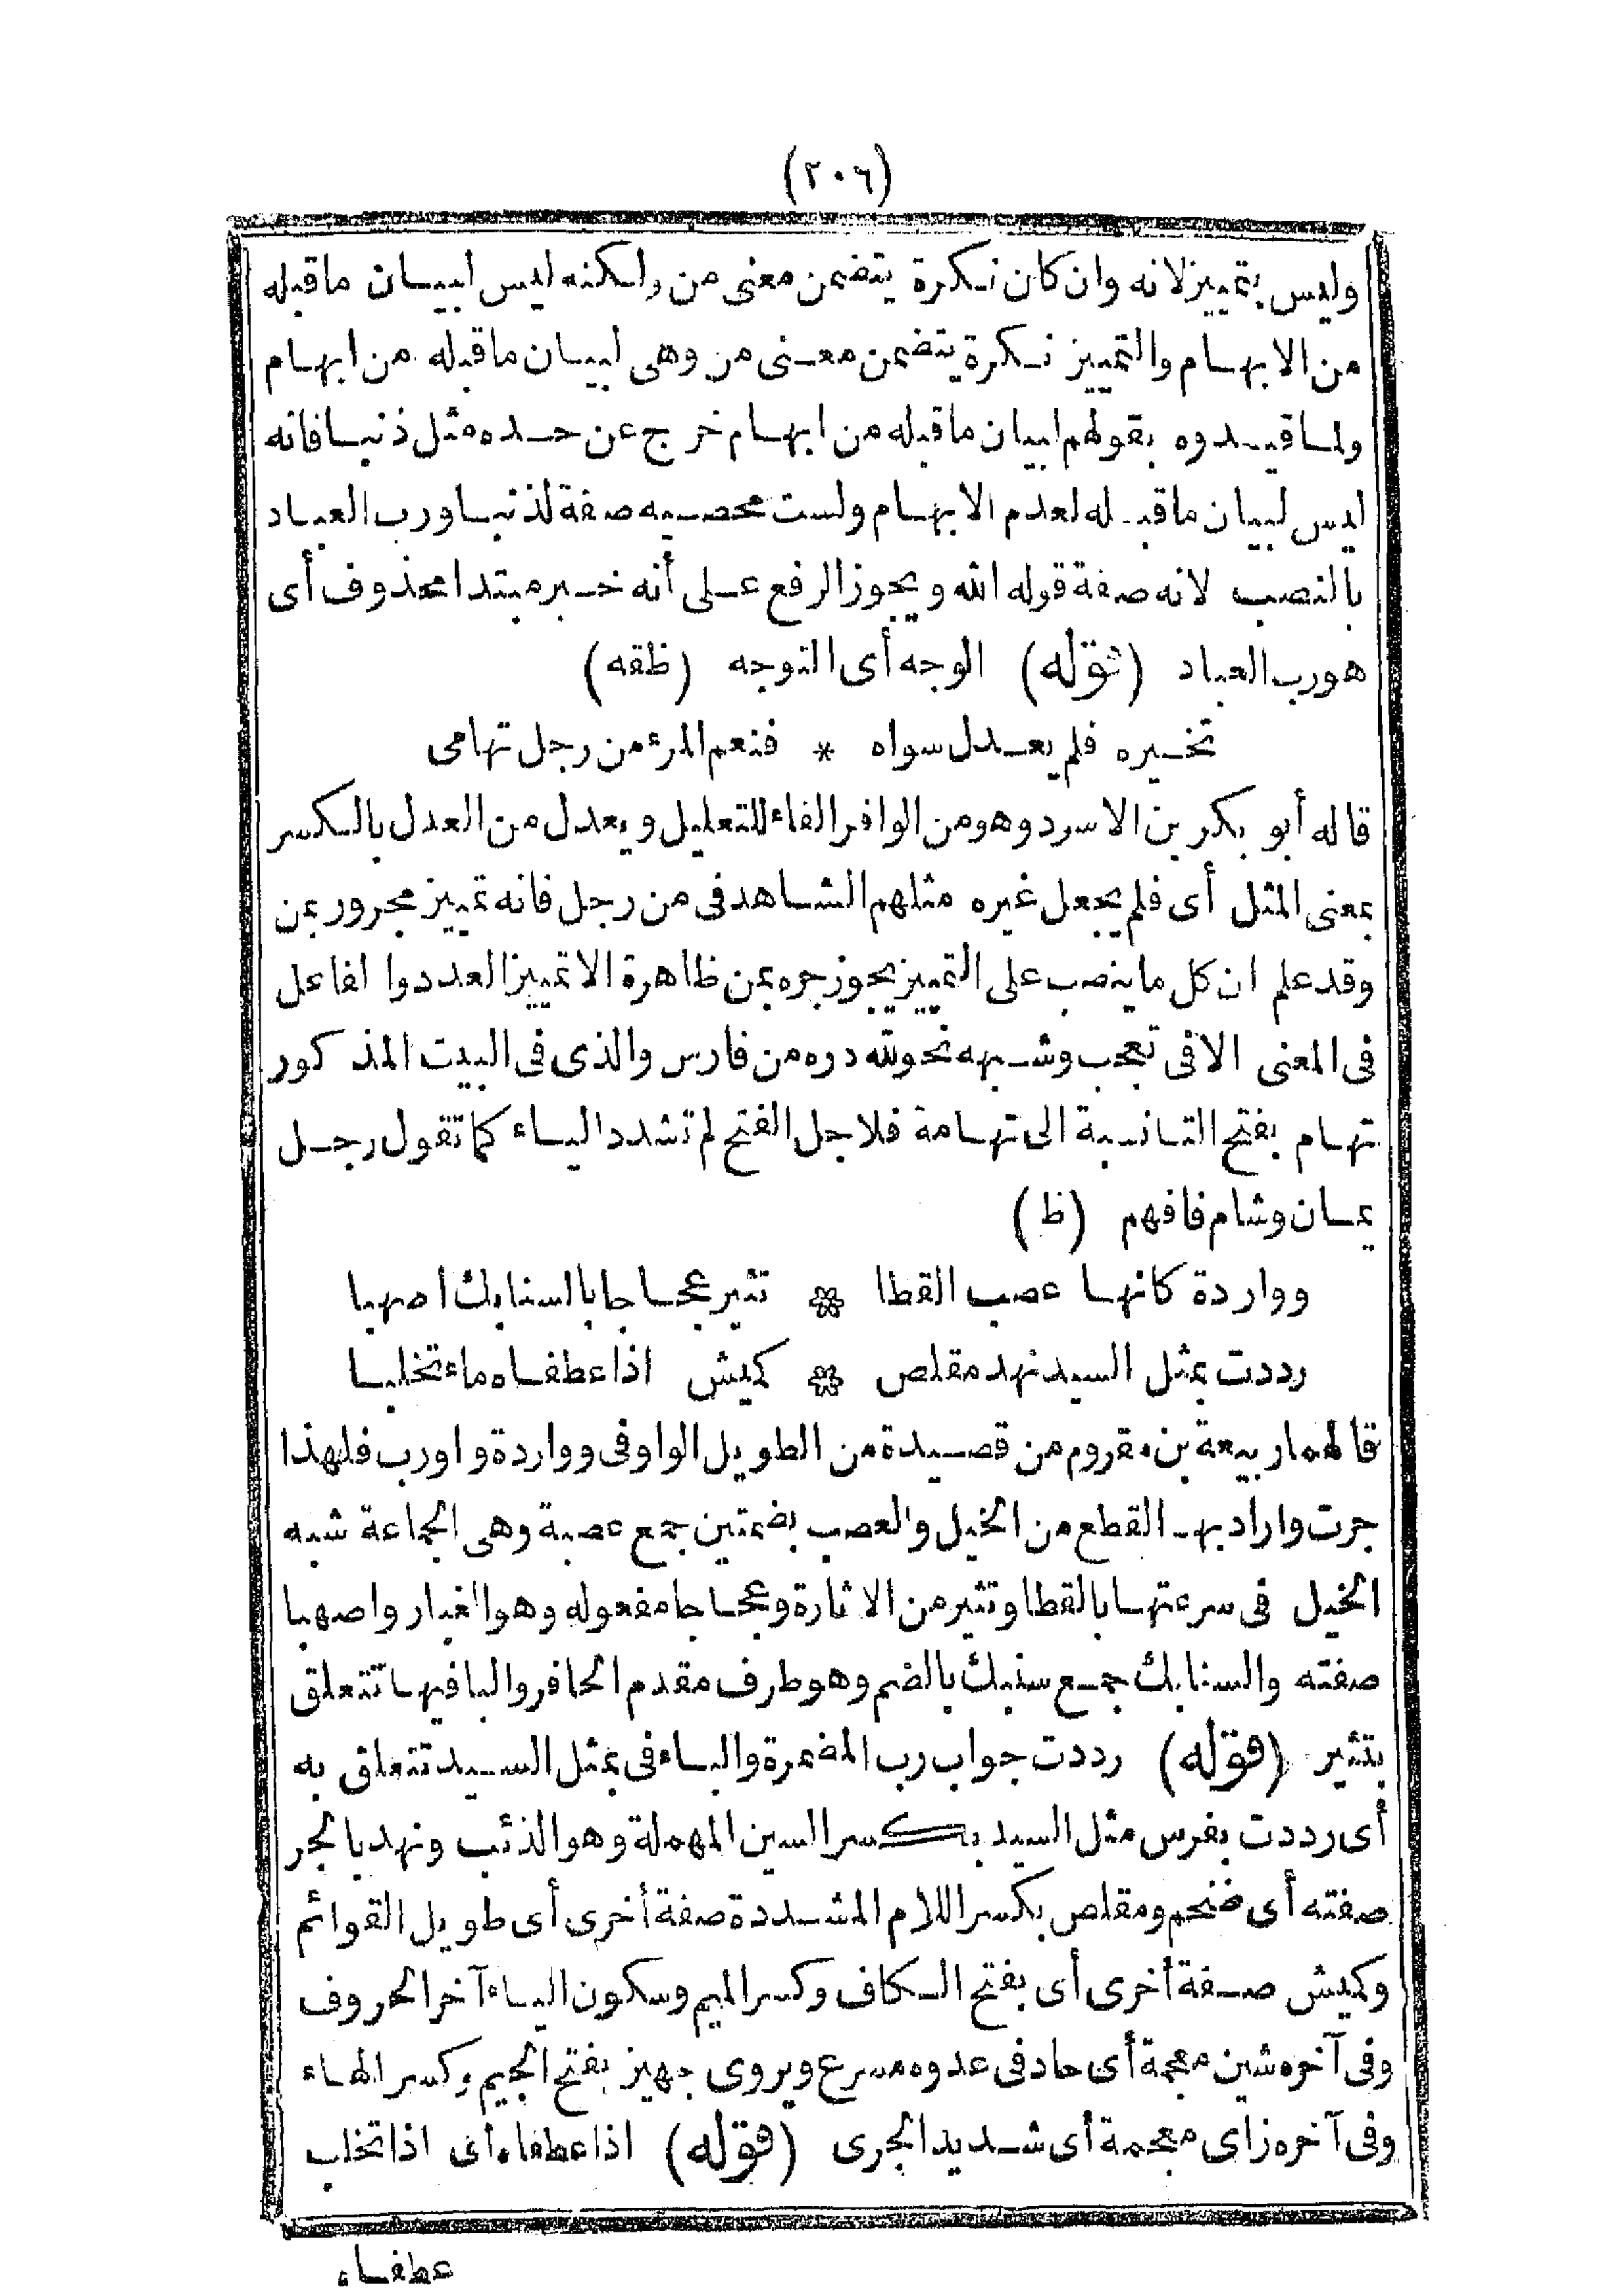 (٢٠٦)
وليس بتمييز لانه وان كان نكرة يتضمن معنى من ولكنه ليس لبيان ماقبله
من الابهام والتمييز نكرة يتضمن معنى من وهى لبيان ماقبله من ابهام
ولما قيدوه بقولهم لبيان ماقبله من ابهام خرج عن حده مثل ذنبا فانه
ليس لبيان ماقبله لعدم الابهام ولست محصيه صفة لذنبا ورب العباد
بالنصب لانه صفة قوله الله ويجوز الرفع على أنه خبر مبتدا محذوف أى
هورب العباد (قوله) الوجه أى التوجه (ظقه)
تخيره فلم يعدل سواه * فنعم المرء من رجل تهامى
قاله أبو بكر بن الاسود وهو من الوافر الفاء للتعليل ويعدل من العدل بالكسر
بمعنى المثل أى فلم يجعل غيره مثلهم الشاهد فى من رجل فانه تمييز مجرور بمن
وقد علم ان كل ماينصب على التمييز يجوز جره بمن ظاهرة الاتمييز العدد وا لفاعل
فى المعنى الا فى تعجب وشبهه نحولله دره من فارس والذى فى البيت المذكور
تهام بفتح التا نسبة الى تهامة فلاجل الفتح لم تشدد الياء كما تقول رجل
يمان وشام فافهم (ظ)
وواردة كانها عصب القطا * تثير عجاجا بالسنابك اصهبا
رددت بمثل السيد نهد مقلص * كميش اذا عطفاه ماء تحلبا
قالهما ربيعة بن مقروم من قصيدة من الطويل الواو فى وواردة واورب فلهذا
جرت واراد بها القطع من الخيل والعصب بضمتين جمع عصبة وهى الجماعة شبه
الخيل فى سرعتها بالقطا وتثير من الاثارة وعجاجا مفعوله وهو الغبار واصهبا
صفته والسنابك جمع سنبك بالضم وهو طرف مقدم الحافر والبا فيها تتعلق
بتثير (قوله) رددت جواب رب المضمرة والباء فى بمثل السيد تتعلق به
أى رددت بفرس مثل السيد بكسر السين المهملة وهو الذئب ونهد بالجر
صفته أى ضخم ومقلص بكسر اللام المشددة صفة أخرى أى طويل القوائم
وكميش صفة أخرى أى بفتح الكاف وكسر الميم وسكون الياء آخر الحروف
وفى آخره شين معجمة أى حاد فى عدوه مسرع ويروى جهيز بفتح الجيم وكسر الهاء
وفى آخره زاى معجمة أى شديد الجرى (قوله) اذا عطفاه أى اذا تحلب
عطفاه